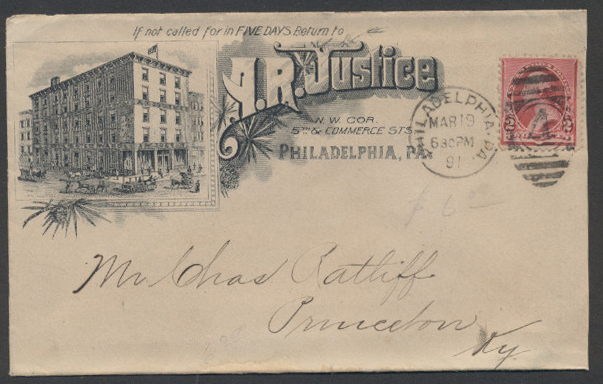 If not called for in FIVE DAYS Return to
J. R. Justice
N. W. COR.
5TH & COMMERCE STS.
PHILADELPHIA, PA.
PHILADELPHIA, PA.
MAR 19
630PM
91
Mr Chas Ratliff
Princeton
Ky.
$6—